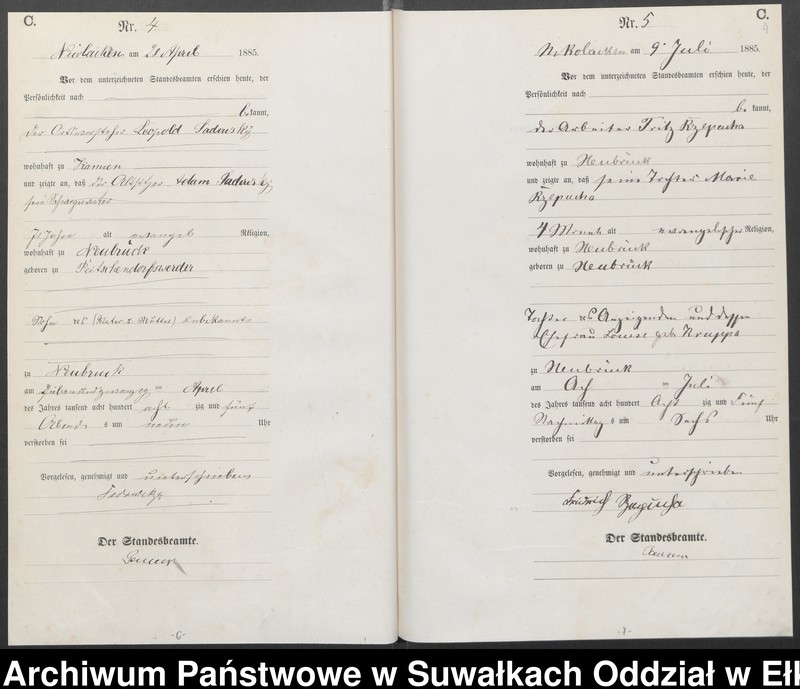 C.
Nr. 4
am 28 April 1885.
Vor dem unterzeichneten Standesbeamten erschien heute, der
Persönlichkeit nach
be kannt,
der Leopold Sadowsky
wohnhaft zu Kamien
und zeigte an, daß der Altsitzer Adam Sadowsky
sein Schwager
71 Jahre alt evangel Religion,
wohnhaft zu Neubrück
geboren zu Peitschendorfswerder
Sohn des (Vater u. Mutter) unbekannt
zu Neubruck
am April
des Jahres tausend acht hundert acht zig und fünf
Abends um neun Uhr
verstorben sei
Vorgelesen, genehmigt und unterschrieben
Der Standesbeamte.
-6-
C.
Nr. 5
Nikolaiken am 9 Juli 1885.
Vor dem unterzeichneten Standesbeamten erschien heute, der
Persönlichkeit nach
be kannt,
der Arbeiter Fritz Rzepucha
wohnhaft zu Neubrück
und zeigte an, daß seine Tochter Marie
Rzepucha
4 Monat alt evangelischer Religion,
wohnhaft zu Neubrück
geboren zu Neubrück
Tochter des Anzeigenden und dessen
Ehefrau Louise geb Kruppa
zu Neubrück
am Acht Juli
des Jahres tausend acht hundert Acht zig und Fünf
Nachmittag s um Sechs Uhr
verstorben sei
Vorgelesen, genehmigt und unterschrieben
Friedrich
Der Standesbeamte.
-7-
Archiwum Państwowe w Suwałkach Oddział w Ełk